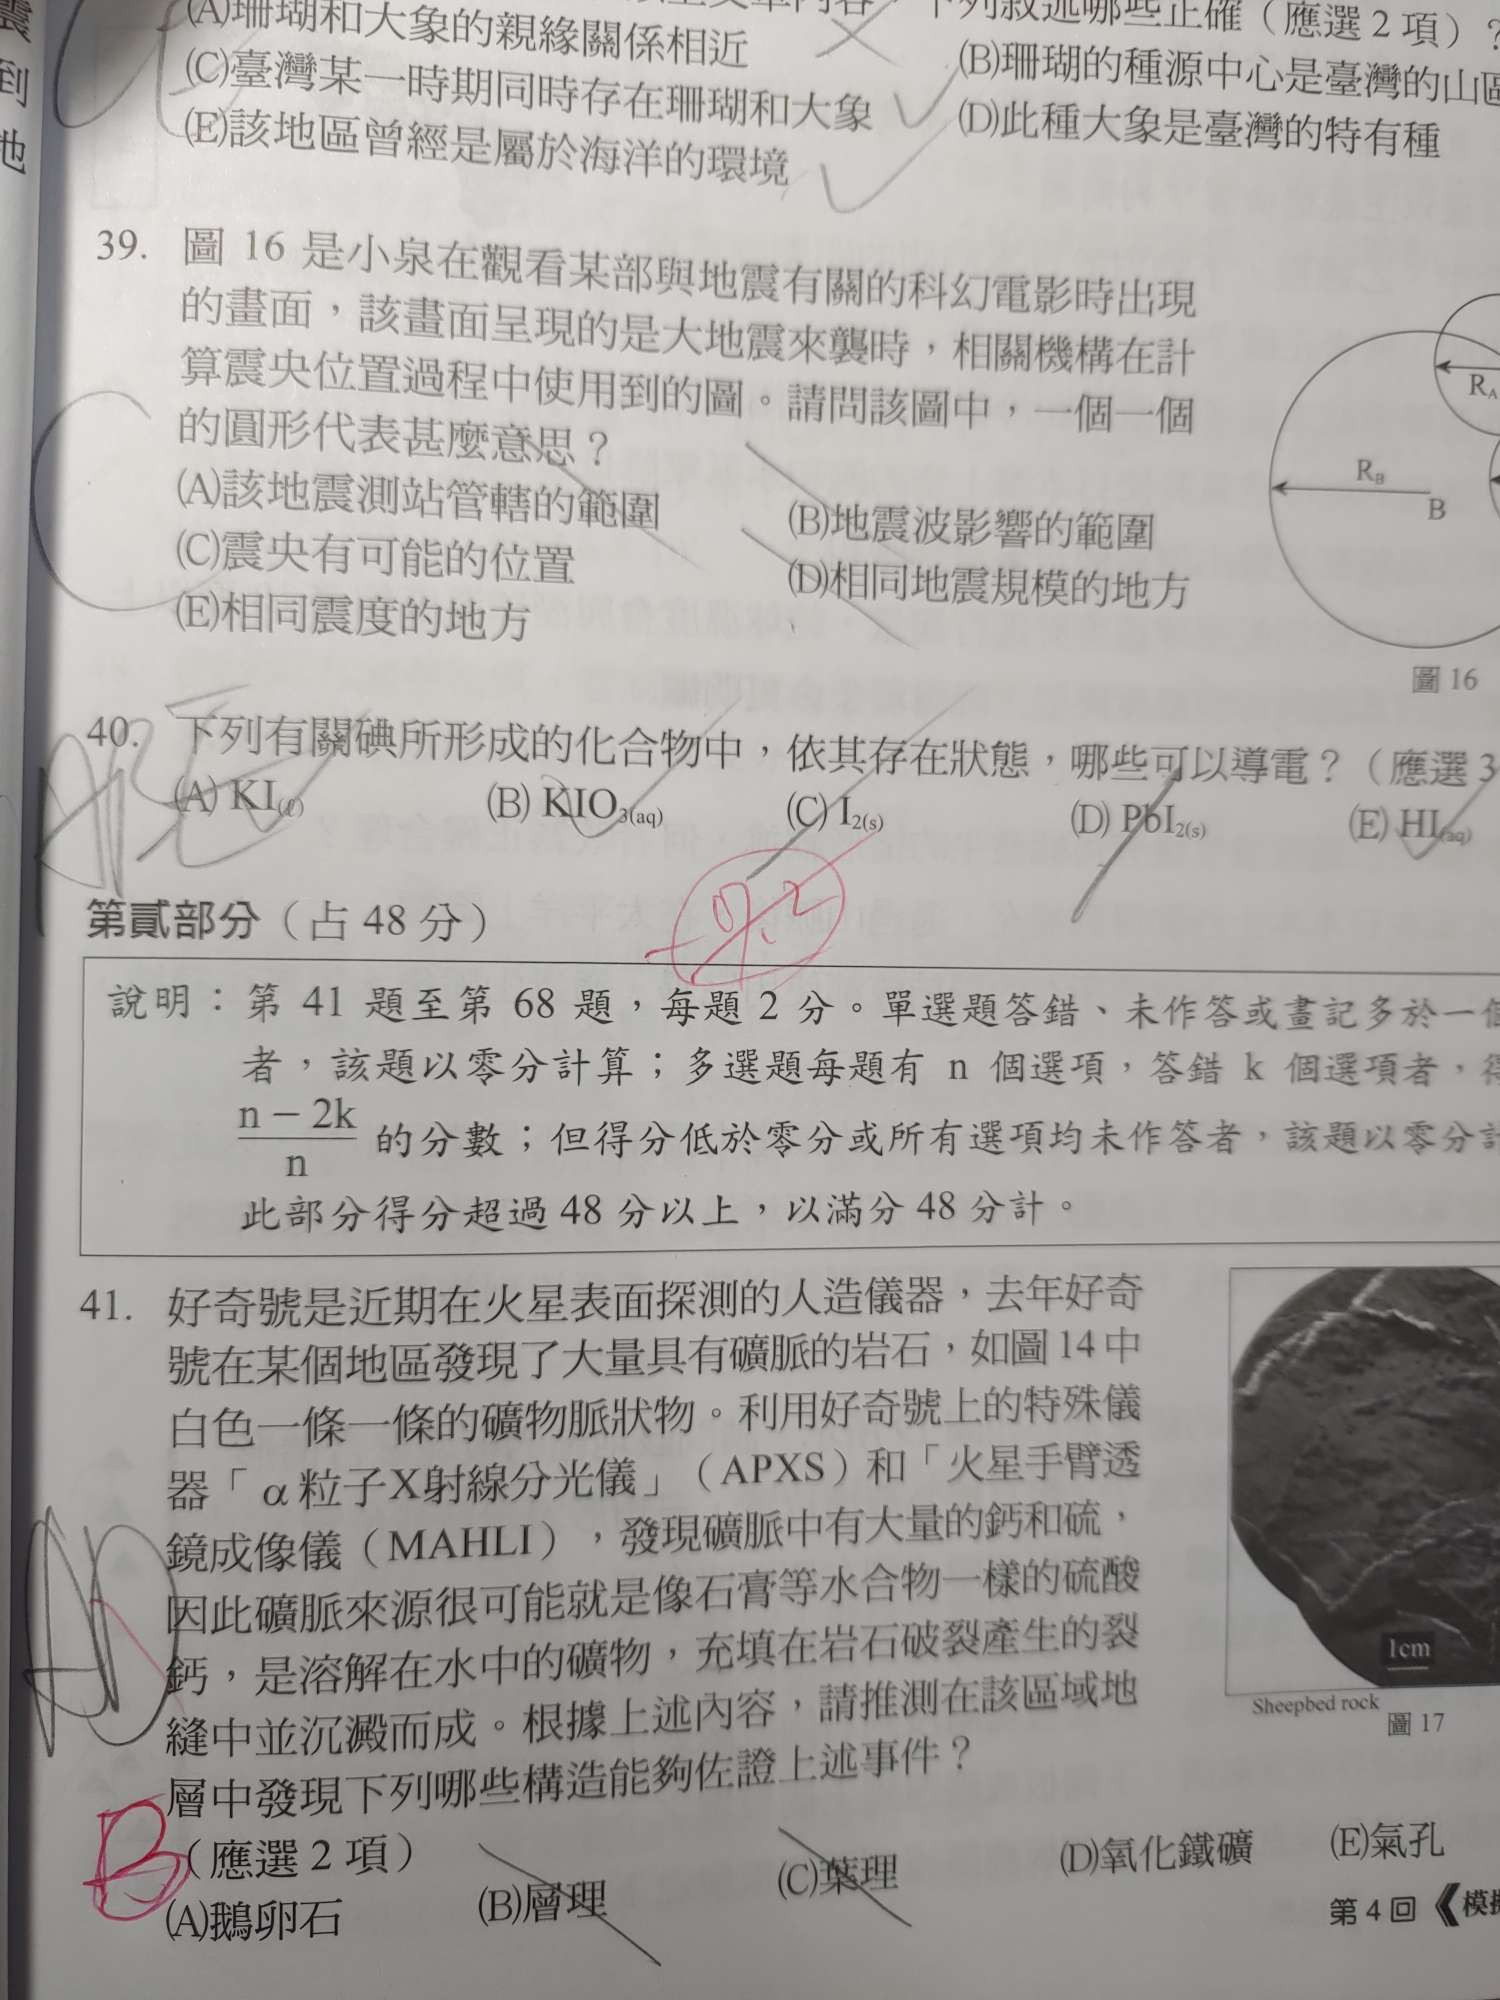 震
到
地
下列敘述哪些正確（應選2項）？
(A)珊瑚和大象的親緣關係相近
(B)珊瑚的種源中心是臺灣的山區
(C)臺灣某一時期同時存在珊瑚和大象
(D)此種大象是臺灣的特有種
(E)該地區曾經是屬於海洋的環境
39. 圖 16 是小泉在觀看某部與地震有關的科幻電影時出現
的畫面，該畫面呈現的是大地震來襲時，相關機構在計
算震央位置過程中使用到的圖。請問該圖中，一個一個
的圓形代表甚麼意思？
(A)該地震測站管轄的範圍
(B)地震波影響的範圍
(C)震央有可能的位置
(D)相同地震規模的地方
(E)相同震度的地方
RA
RB
B
圖 16
40. 下列有關碘所形成的化合物中，依其存在狀態，哪些可以導電？（應選 3
(A) KI(ℓ)
(B) KIO3(aq)
(C) I2(s)
(D) PbI2(s)
(E) HI(aq)
-9.2
第貳部分（占 48 分）
說明：第 41 題至第 68 題，每題 2 分。單選題答錯、未作答或畫記多於一個
者，該題以零分計算；多選題每題有 n 個選項，答錯 k 個選項者，得
n－2k
n
的分數；但得分低於零分或所有選項均未作答者，該題以零分計
此部分得分超過 48 分以上，以滿分 48 分計。
41. 好奇號是近期在火星表面探測的人造儀器，去年好奇
號在某個地區發現了大量具有礦脈的岩石，如圖 14 中
白色一條一條的礦物脈狀物。利用好奇號上的特殊儀
器「α粒子X射線分光儀」（APXS）和「火星手臂透
鏡成像儀（MAHLI），發現礦脈中有大量的鈣和硫，
因此礦脈來源很可能就是像石膏等水合物一樣的硫酸
鈣，是溶解在水中的礦物，充填在岩石破裂產生的裂
縫中並沉澱而成。根據上述內容，請推測在該區域地
層中發現下列哪些構造能夠佐證上述事件？
（應選 2 項）
B
(A)鵝卵石
(B)層理
(C)葉理
(D)氧化鐵礦
(E)氣孔
1cm
Sheepbed rock
圖 17
第 4 回《模擬